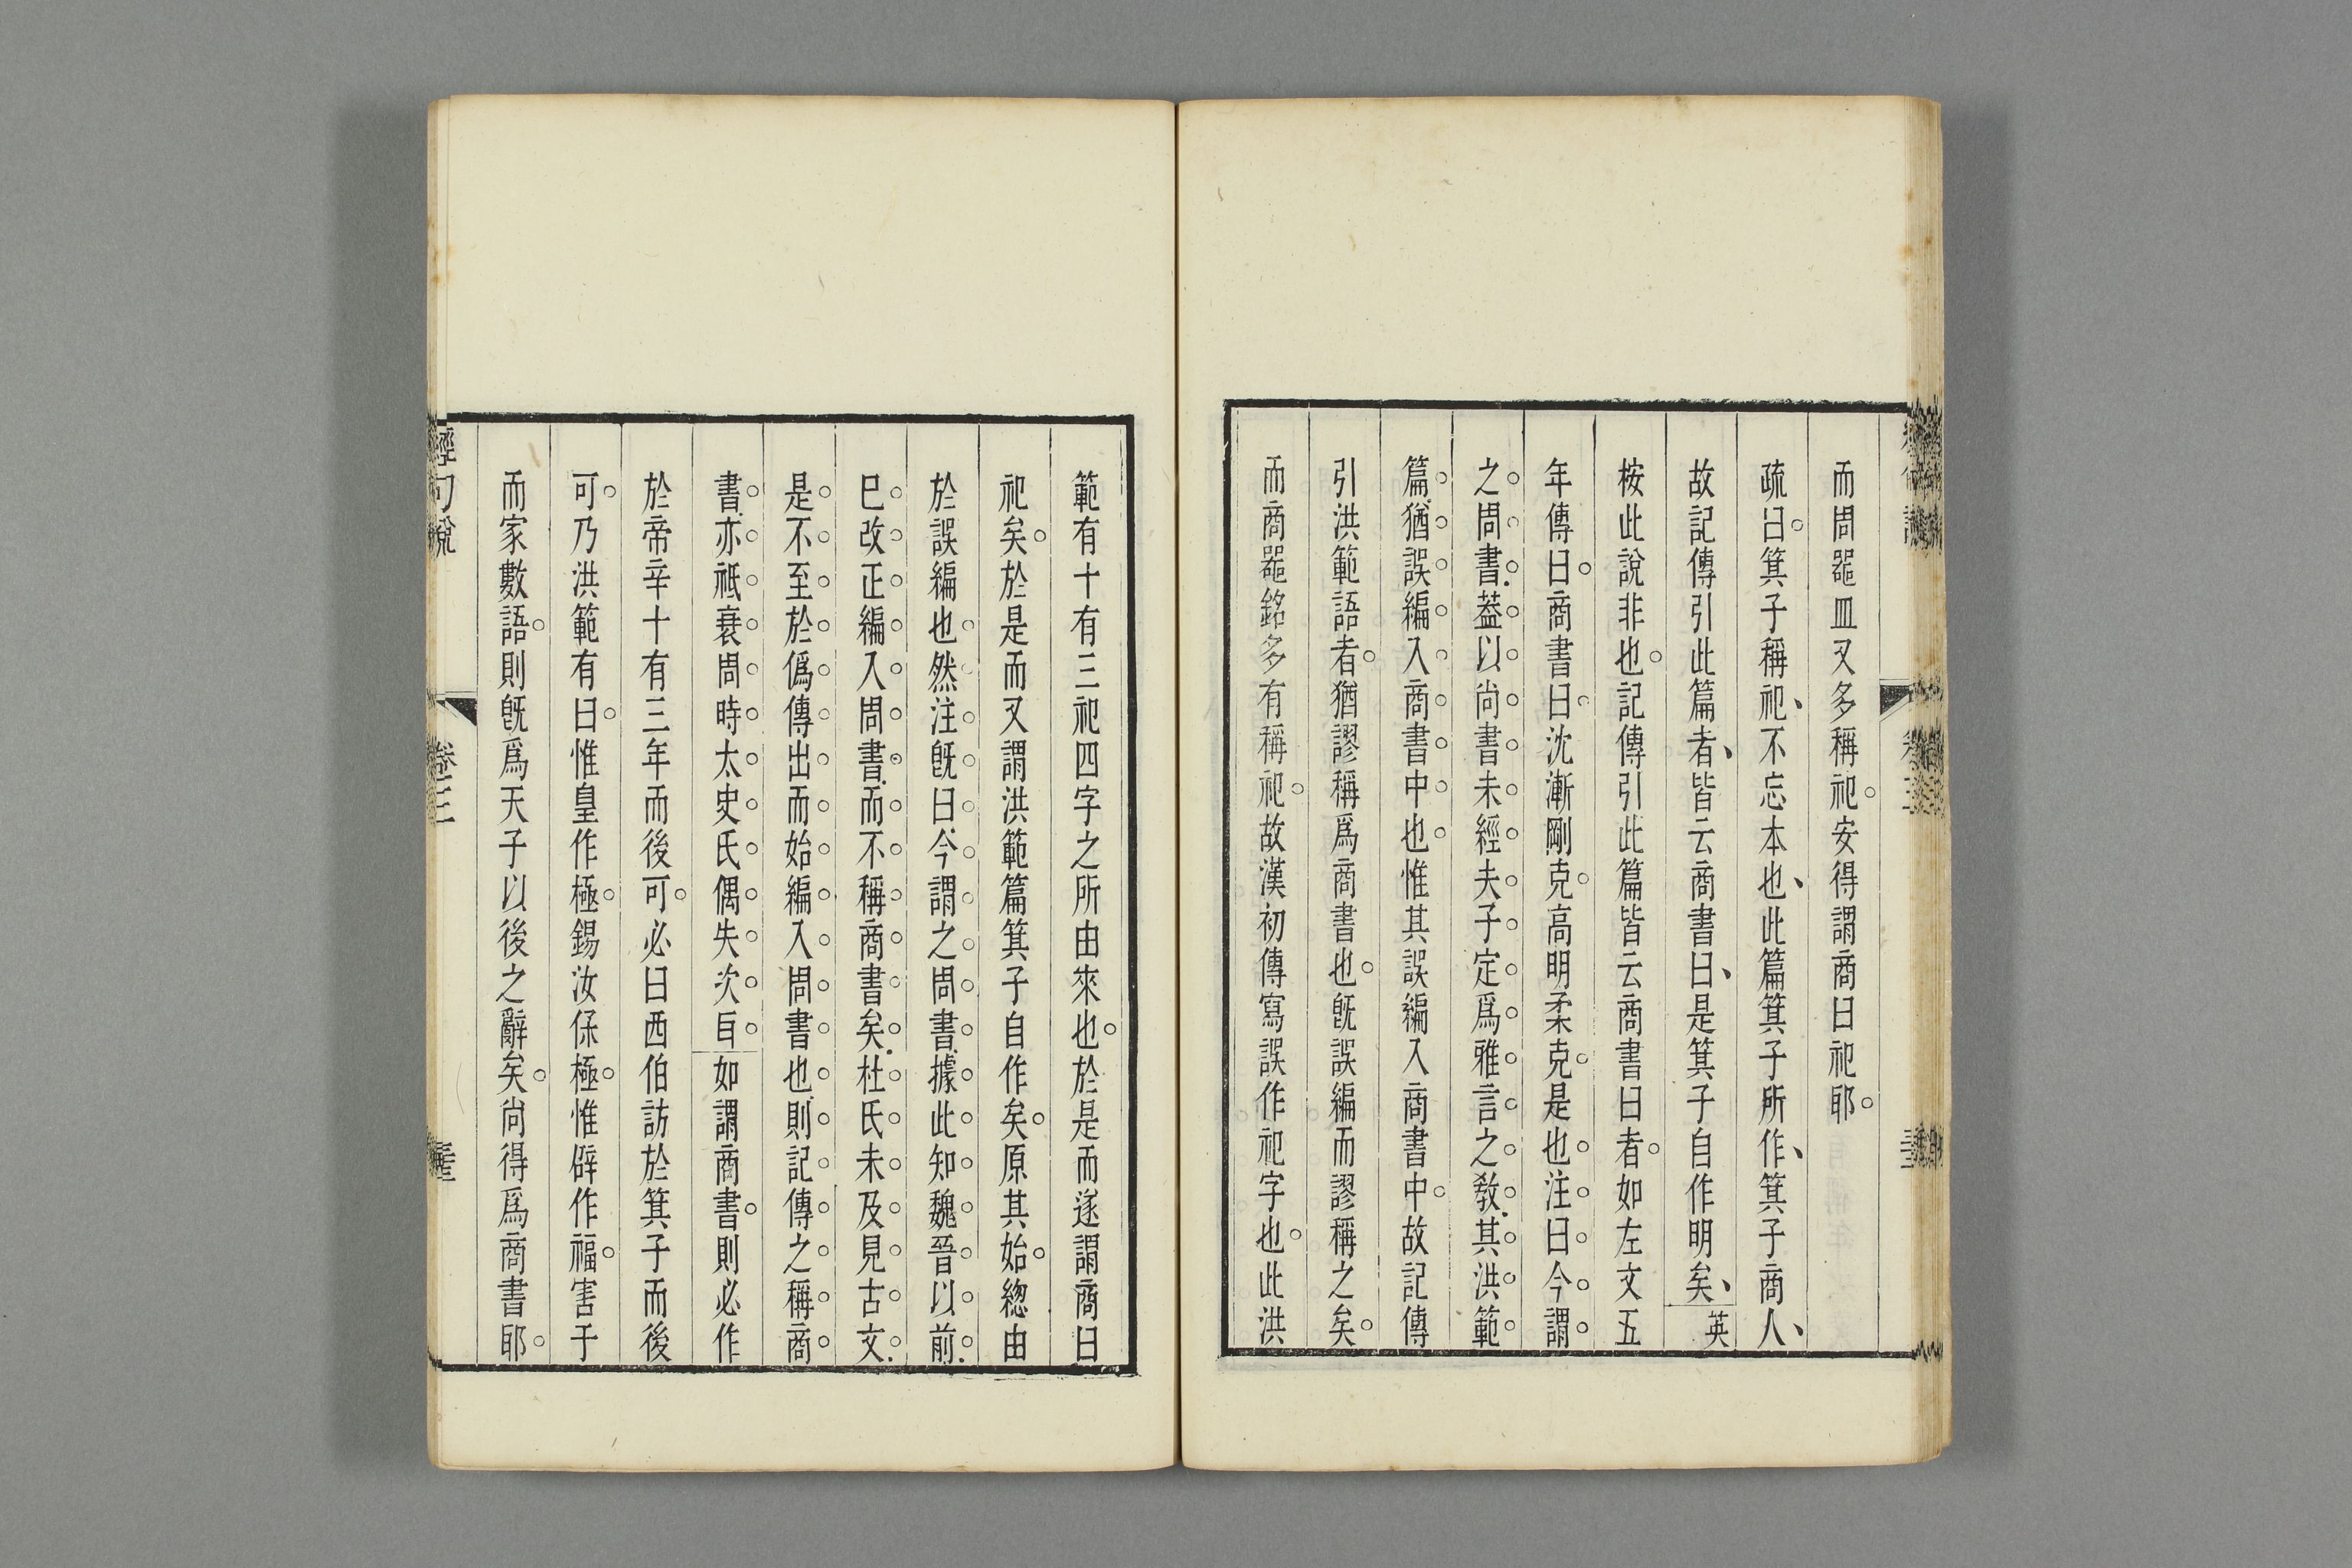 而周器皿又多稱祀。安得謂商曰祀耶。
疏曰。箕子稱祀、不忘本也、此篇箕子所作、箕子商人、
故記傳引此篇者、皆云商書曰、是箕子自作明矣、英
桉此說非也。記傳引此篇皆云商書曰者。如左文五
年傳曰。商書曰。沈漸剛克。高明柔克。是也。注曰。今謂
之周書。葢以尚書未經夫子定爲雅言之敎。其洪範
篇。猶誤編入商書中也。惟其誤編入商書中。故記傳
引洪範語者。猶謬稱爲商書也。旣誤編而謬稱之矣。
而商器銘多有稱祀。故漢初傳寫誤作祀字也。此洪
範有十有三祀四字之所由來也。於是而遂謂商曰
祀矣。於是而又謂洪範篇箕子自作矣。原其始。緫由
於誤編也。然注旣曰。今謂之周書。據此知魏晉以前。
巳改正編入周書。而不稱商書矣。杜氏未及見古文。
是不至於僞傳出而始編入周書也。則記傳之稱商
書。亦祗衰周時太史氏偶失次𦣞如謂商書。則必作
於帝辛十有三年而後可。必曰西伯訪於箕子而後
可。乃洪範有曰。惟皇作極。錫汝保極。惟辟作福。害于
而家數語。則旣爲天子以後之辭矣。尚得爲商書耶。
經句說
卷三